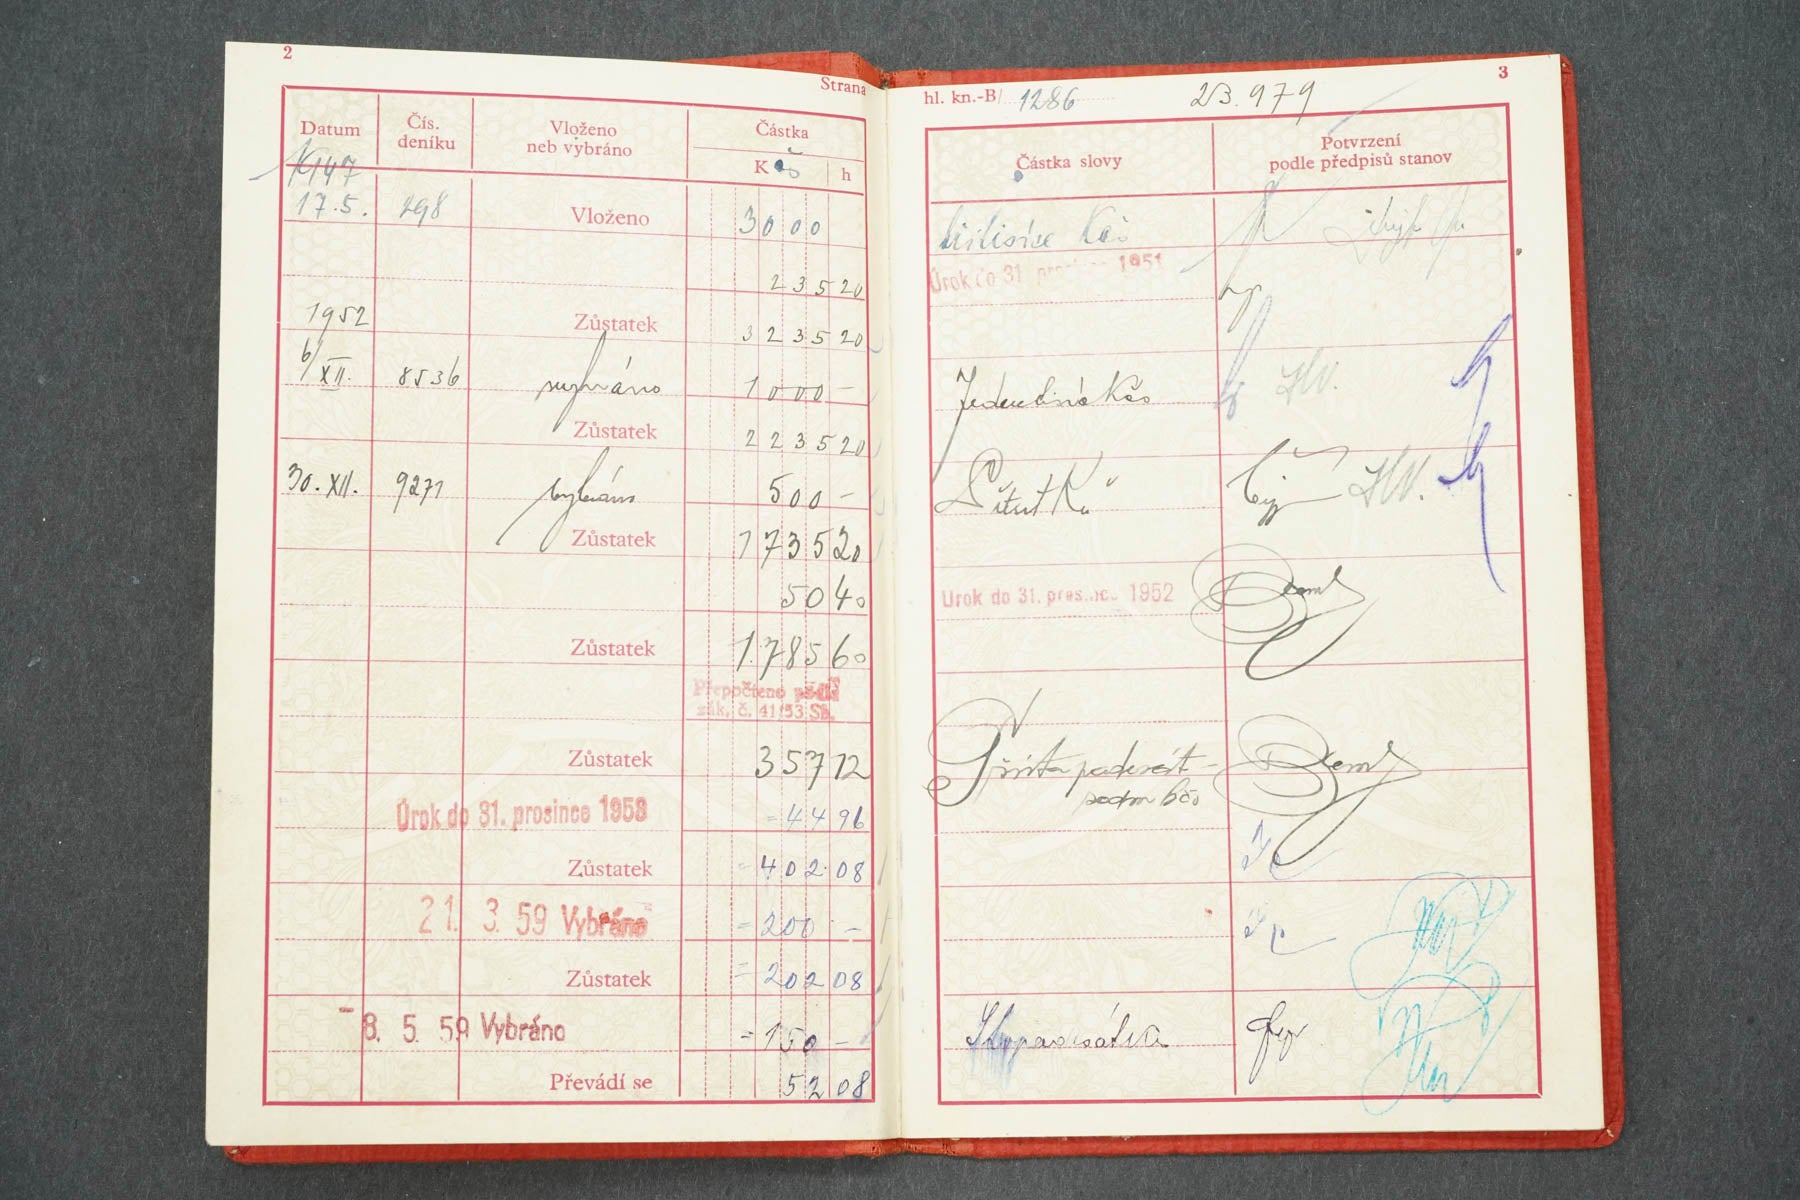 2
Strana
Datum
Čís. deníku
Vloženo neb vybráno
Částka
Kčs h
17.5. 298 Vloženo 3000
235 20
1952 Zůstatek 3235 20
6/XII. 8536 vybráno 1000 –
Zůstatek 2235 20
30. XII. 9271 vybráno 500 –
Zůstatek 1735 20
50 40
Zůstatek 1785 60
Přepočteno podle
zák. č. 41/53 Sb.
Zůstatek 357 12
Úrok do 31. prosince 1958 = 44 96
Zůstatek = 402 08
21. 3. 59 Vybráno = 200 –
Zůstatek = 202 08
– 8. 5. 59 Vybráno = 150 –
Převádí se 52 08
3
hl. kn.-B/ 1286 23.979
Částka slovy
Potvrzení
podle předpisů stanov
Kčs
Úrok do 31. prosince 1951
Jedentisíc Kčs
Pětset Kčs
Úrok do 31. prosince 1952
Třista padesát-
sedm Kčs